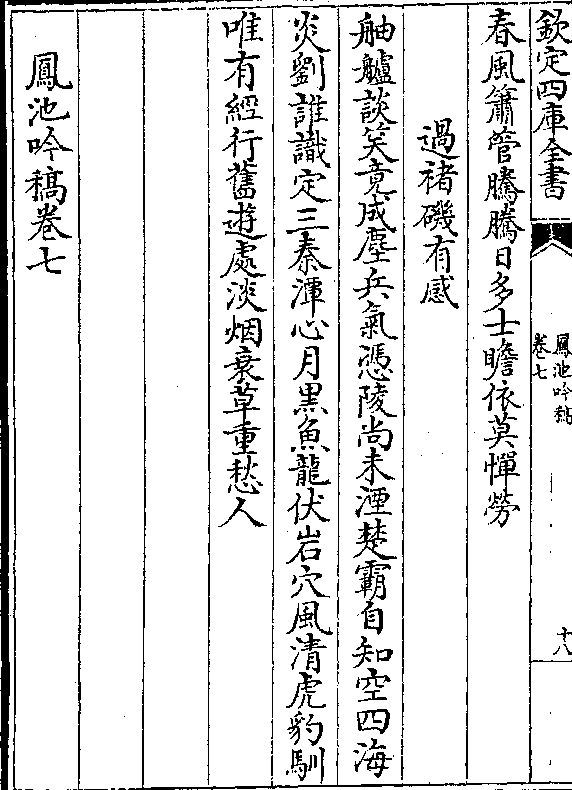 欽定四庫全書
鳳池吟稿
卷七
十八
春風簫管騰騰日多士瞻依莫憚勞
過褚磯有感
舳艫談笑竟成塵兵氣憑陵尚未湮楚霸自知空四海
炎劉誰識定三秦潭心月黒魚龍伏岩穴風清虎豹馴
唯有經行舊遊處淡烟衰草重愁人
鳳池吟稿卷七